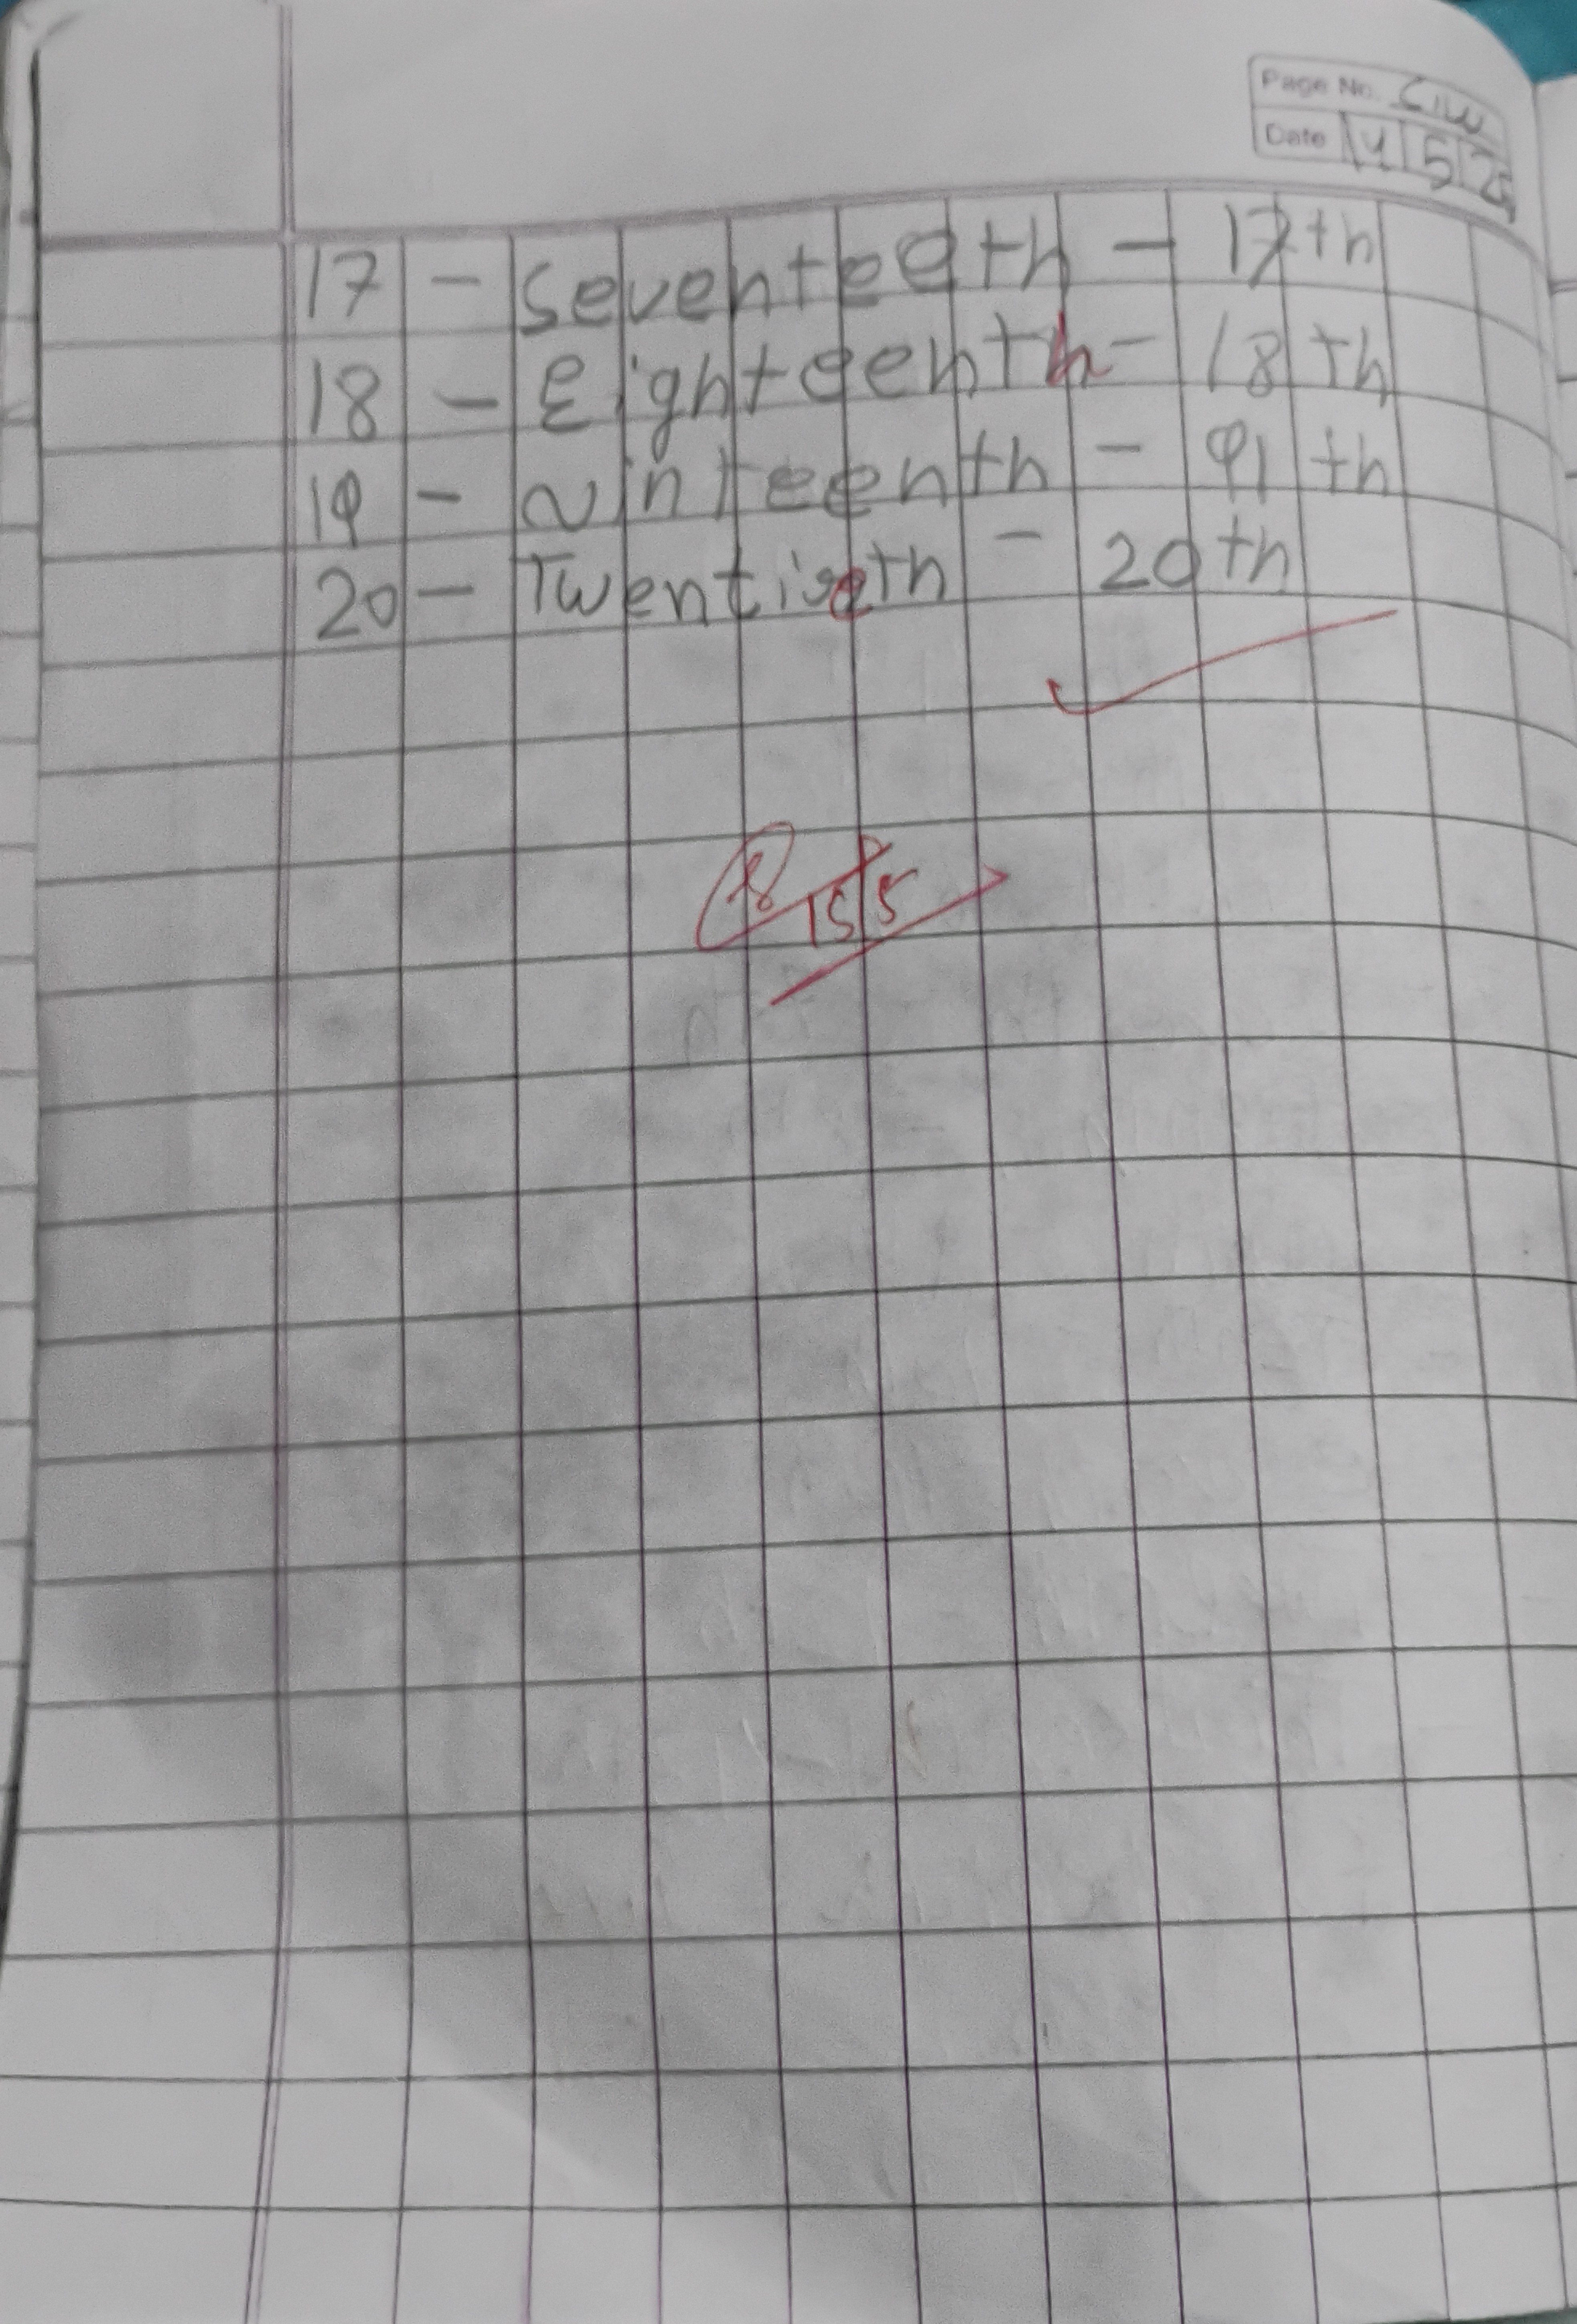 Page No. C/W
Date 14 5 25
17 - Seventeeth - 17th
18 - Eighteenth - 18th
19 - Ninteenth - 91th
20 - Twentieth - 20th
15/5